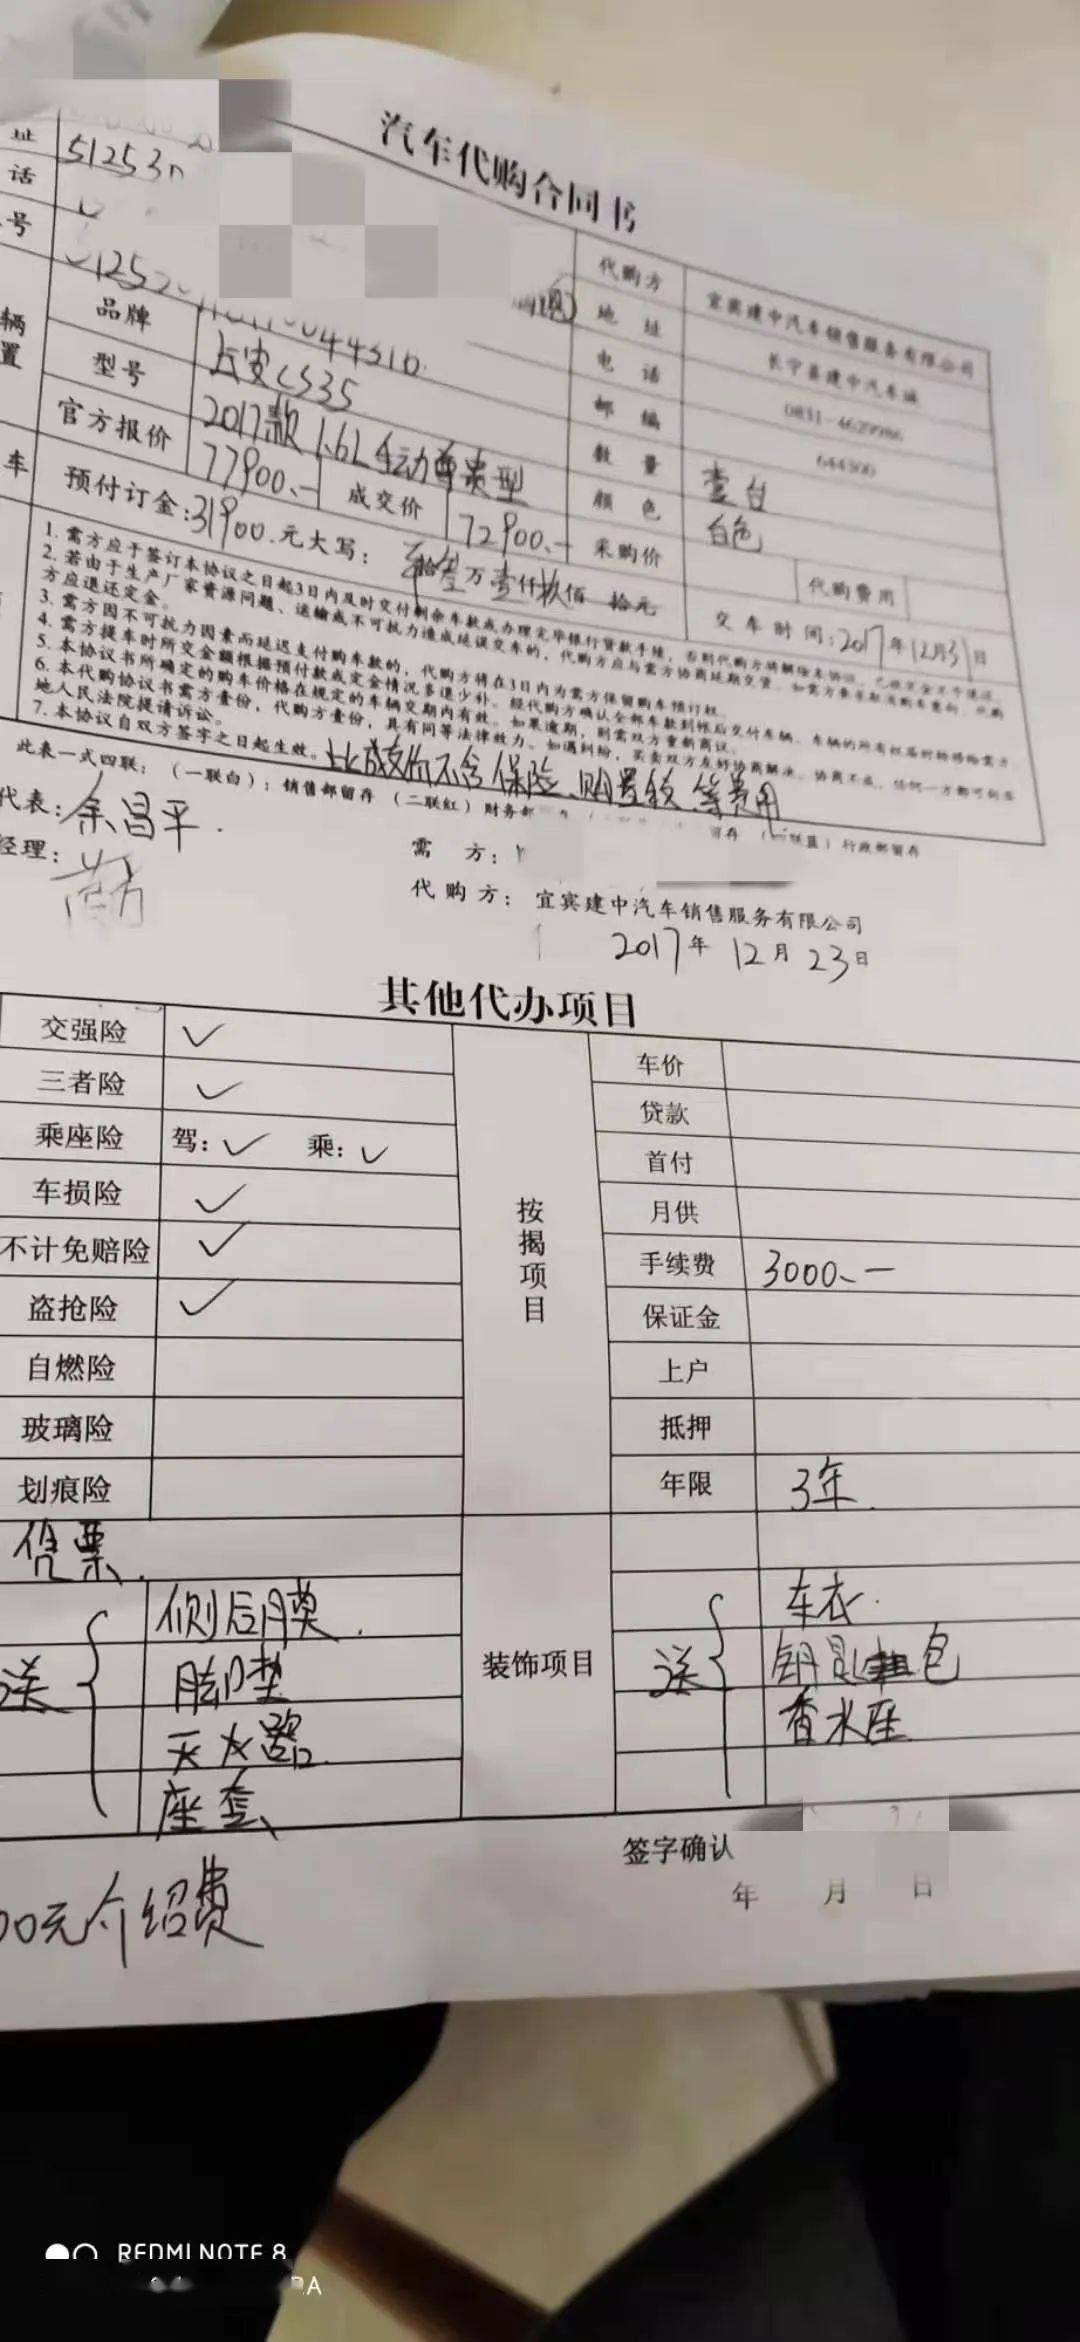 汽车代购合同书
址 51253
话
号
代购方 宜宾建中汽车销售服务有限公司
地 址 长宁县建中汽车城
电 话 0831-4629986
邮 编 644300
品牌 长安CS35
数 量 壹台
型号 2017款 1.6L 手动尊贵型
颜 色 白色
官方报价 77900.-
成交价 72900.-
采购价
代购费用
预付订金:31900.元大写: 叁万壹仟玖佰 拾元
交车时间:2017年12月31日
1. 需方应于签订本协议之日起3日内及时交付剩余车款或办理完毕银行贷款手续，否则代购方将解除本协议，已收定金不予退还。
2. 若由于生产厂家资源问题、运输或不可抗力造成延误交车的，代购方应与需方协商延期交货，如需方要求取消购车意向，代购
方应退还定金。
3. 需方因不可抗力因素而延迟支付购车款的，代购方将在3日内为需方保留购车预订权。
4. 需方提车时所交金额根据预付款或定金情况多退少补。经代购方确认全部车款到帐后交付车辆，车辆的所有权届时转移给需方。
5. 本协议书所确定的购车价格在规定的车辆交期内有效。如果逾期，则需双方重新商议。
6. 本代购协议书需方壹份，代购方壹份，具有同等法律效力。如遇纠纷，买卖双方友好协商解决。协商不成，任何一方都可到当
地人民法院提请诉讼。
7. 本协议自双方签字之日起生效。
此成交价不含保险、购置税等费用
此表一式四联：（一联白）：销售部留存 （二联红）财务部 留存 （ 联蓝）行政部留存
代表: 余昌平.
经理:
需 方:
代购方: 宜宾建中汽车销售服务有限公司
2017年12月23日
其他代办项目
交强险 ✓
三者险 ✓
乘座险 驾:✓ 乘:✓
车损险 ✓
不计免赔险 ✓
盗抢险 ✓
自燃险
玻璃险
划痕险
按揭项目
车价
贷款
首付
月供
手续费 3000.-
保证金
上户
抵押
年限 3年.
送 侧后膜.
脚垫
灭火器.
座套
装饰项目
送 车衣.
钥匙包
香水座
签字确认
年 月 日
00元介绍费
REDMI NOTE 8